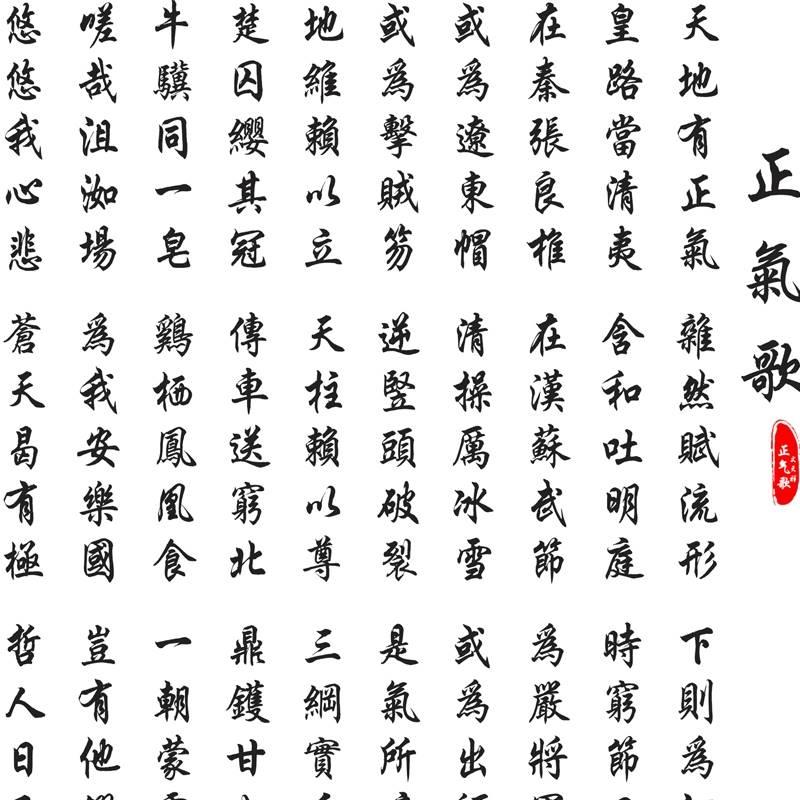 正氣歌
文天祥
正气歌
天地有正氣 雜然賦流形 下則爲
皇路當清夷 含和吐明庭 時窮節
在秦張良椎 在漢蘇武節 爲嚴將
或爲遼東帽 清操厲冰雪 或爲出
或爲擊賊笏 逆豎頭破裂 是氣所
地維賴以立 天柱賴以尊 三綱實
楚囚纓其冠 傳車送窮北 鼎鑊甘
牛驥同一皂 鷄栖鳳凰食 一朝蒙
嗟哉沮洳場 爲我安樂國 豈有他
悠悠我心悲 蒼天曷有極 哲人日